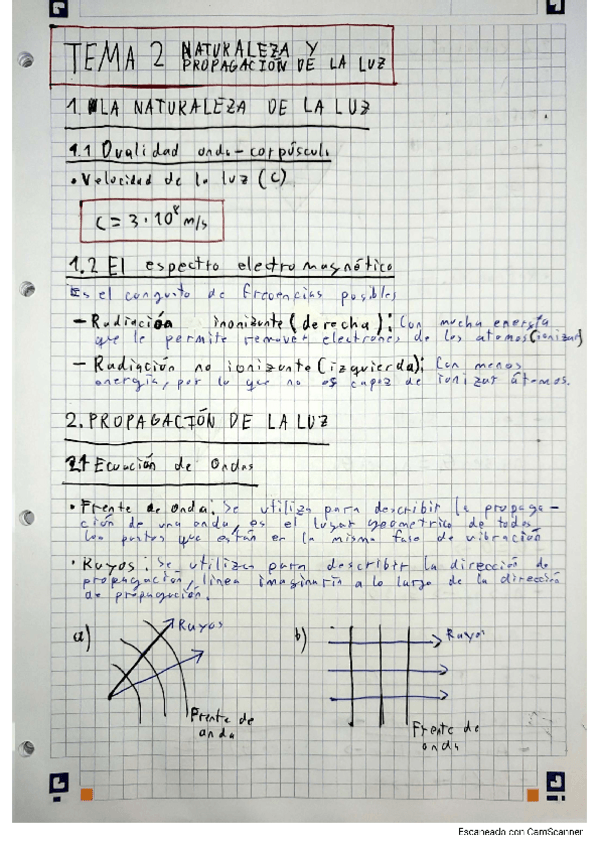 TEMA 2 NATURALEZA Y
PROPAGACIÓN DE LA LUZ
1. LA NATURALEZA DE LA LUZ
1.1 Dualidad onda-corpúsculo
• Velocidad de la luz (c)
c = 3 · 10⁸ m/s
1.2 El espectro electromagnético
Es el conjunto de frecuencias posibles
- Radiación inonizante (derecha): Con mucha energía
que le permite remover electrones de los atomos (ionizar)
- Radiación no ionizante (izquierda): Con menos
energía, por lo que no es capaz de ionizar átomos.
2. PROPAGACIÓN DE LA LUZ
2.1 Ecuación de Ondas
• Frente de onda: Se utiliza para describir la propaga-
ción de una onda, es el lugar geometrico de todos
los puntos que están en la misma fase de vibración
• Rayos: Se utiliza para describir la dirección de
propagación, línea imaginaria a lo largo de la dirección
de propagación.
a) Rayos
Frente de
onda
b) Rayos
Frente de
onda
Escaneado con CamScanner